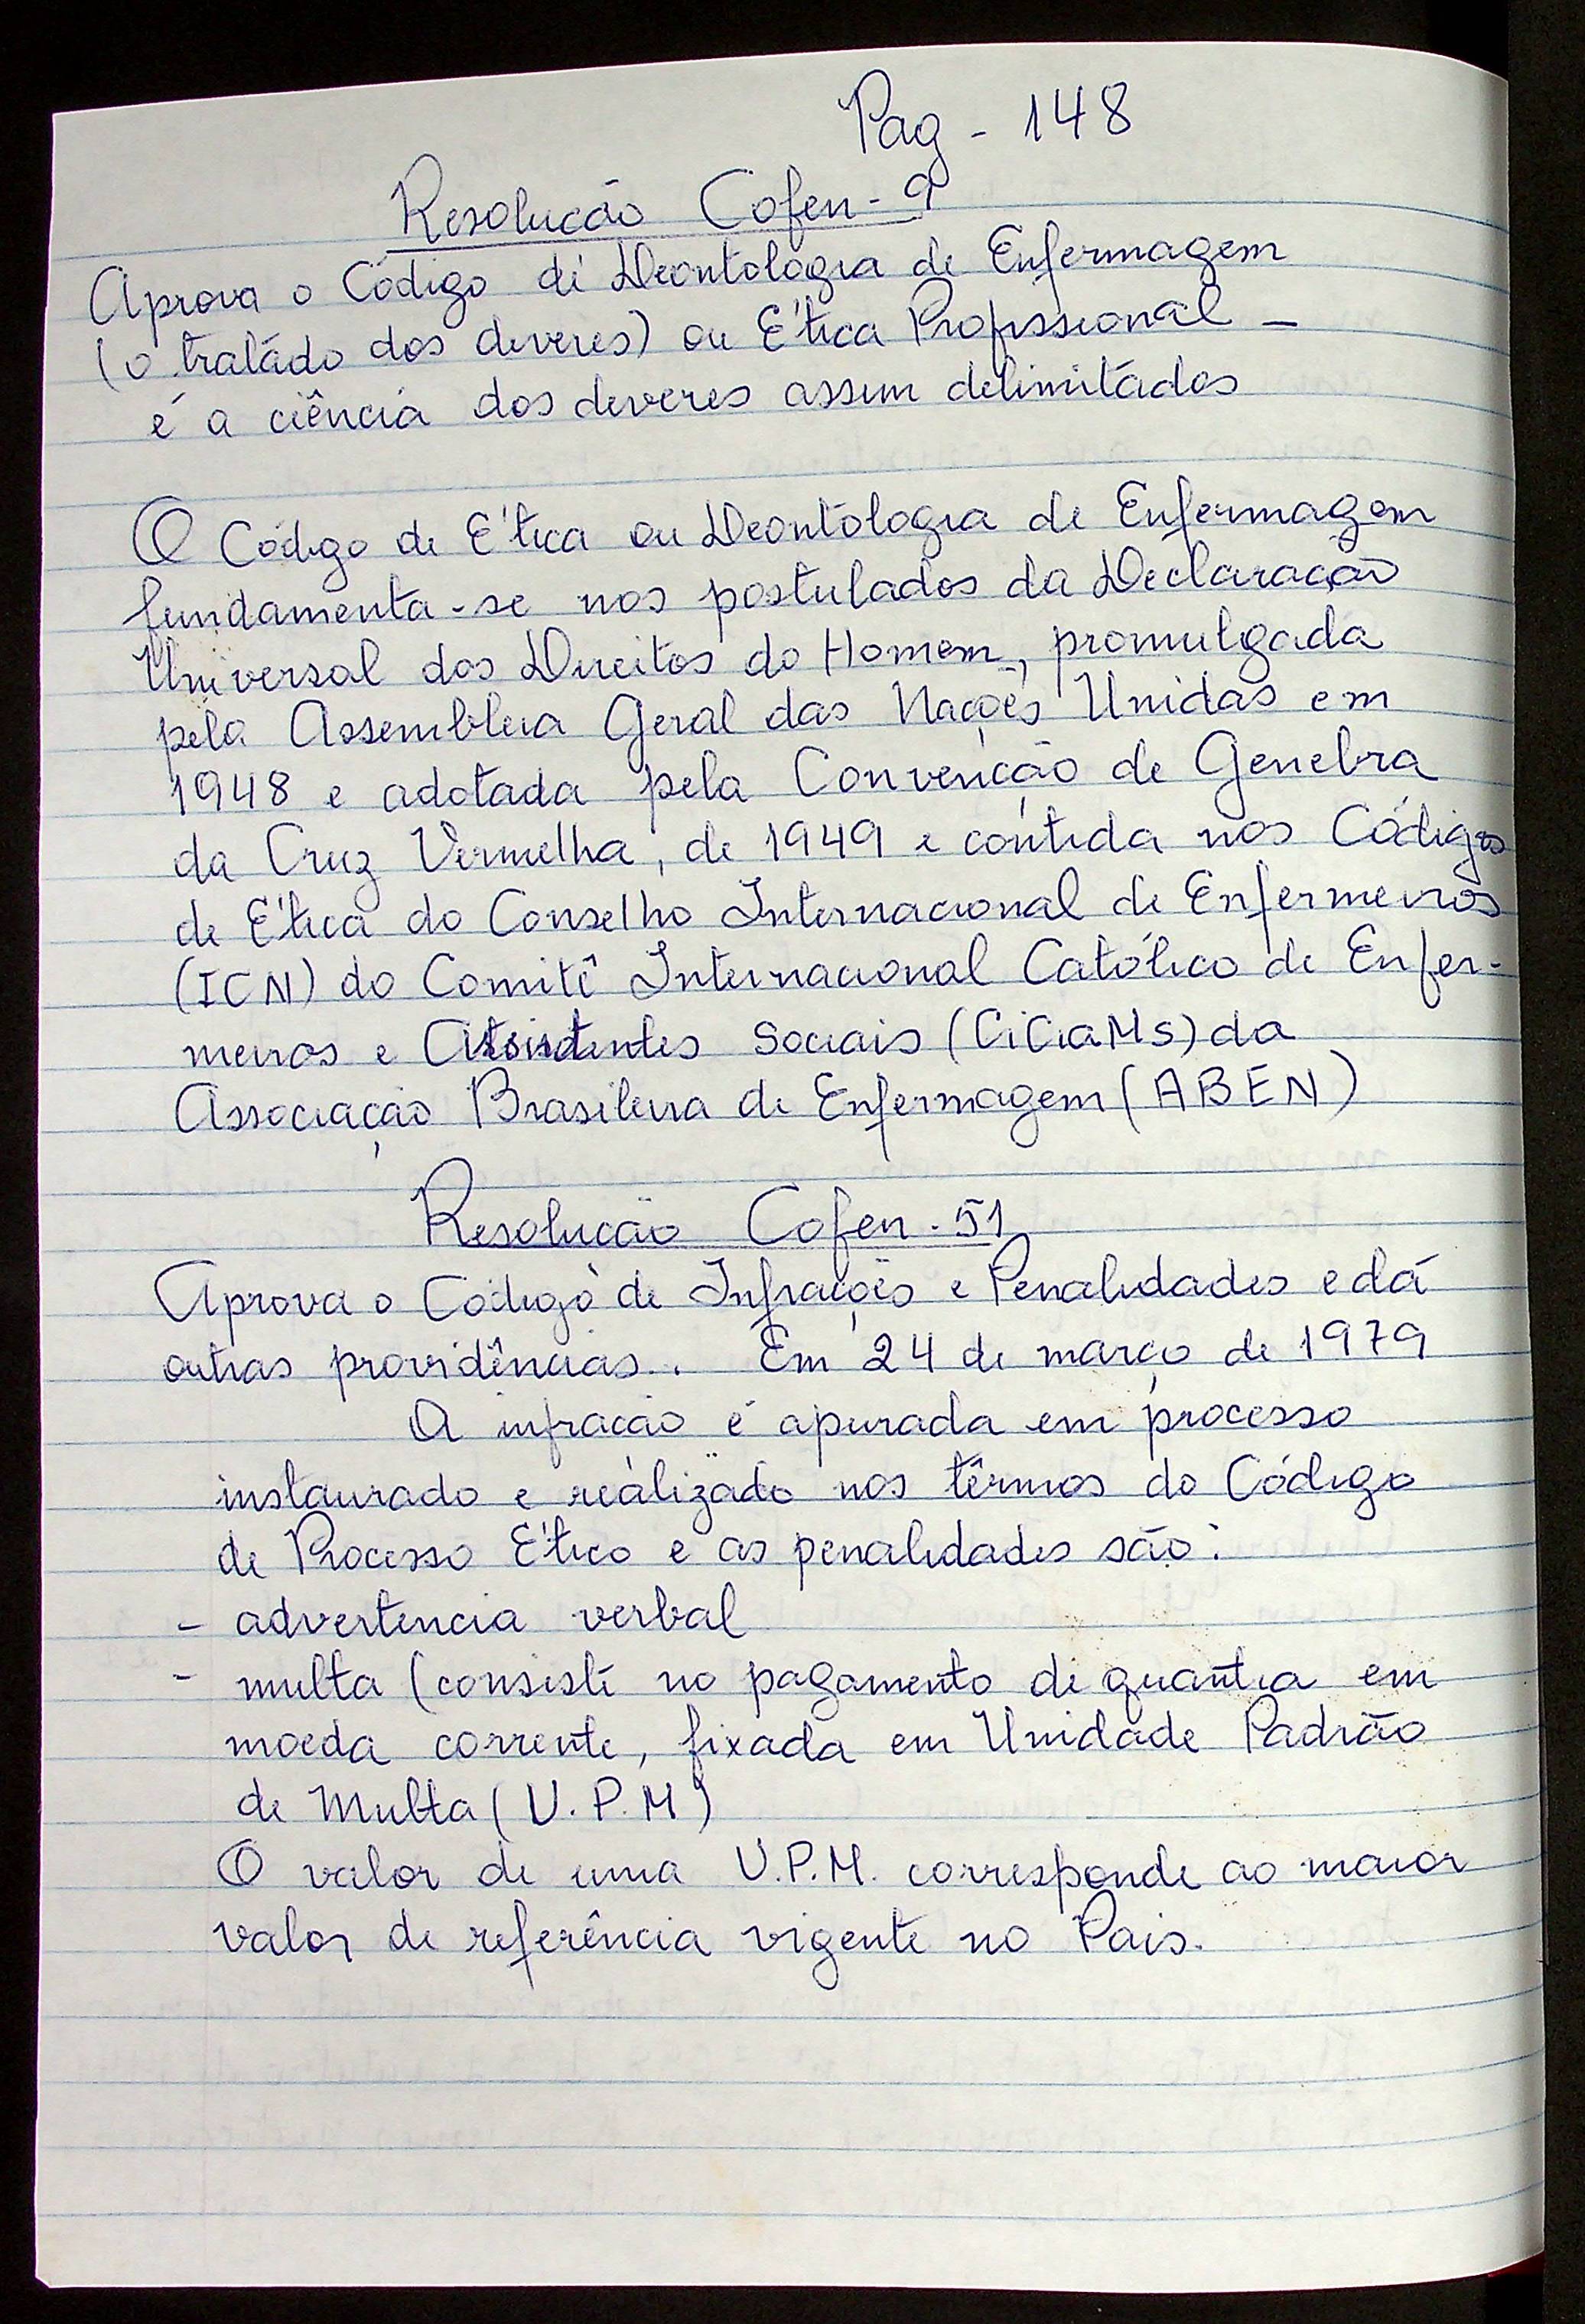 Pag - 148
Resolução Cofen - 9
Aprova o Código de Deontologia de Enfermagem
(o tratado dos deveres) ou Ética Profissional -
é a ciência dos deveres assim delimitados
O Código de Ética ou Deontologia de Enfermagem
fundamenta-se nos postulados da Declaração
Universal dos Direitos do Homem, promulgada
pela Assembleia Geral das Nações Unidas em
1948 e adotada pela Convenção de Genebra
da Cruz Vermelha, de 1949 e contida nos Códigos
de Ética do Conselho Internacional de Enfermeiros
(ICN) do Comitê Internacional Católico de Enfer-
meiros e Assistentes Sociais (CiCiaMs) da
Associação Brasileira de Enfermagem (ABEN)
Resolução Cofen - 51
Aprova o Código de Infrações e Penalidades e dá
outras providências.. Em 24 de março de 1979
A infracão é apurada em processo
instaurado e realizado nos têrmos do Código
de Processo Ético e as penalidades são:
- advertencia verbal
- multa (consiste no pagamento de quantia em
moeda corrente, fixada em Unidade Padrão
de Multa (U.P.M)
O valor de uma U.P.M. corresponde ao maior
valor de referência vigente no Pais.